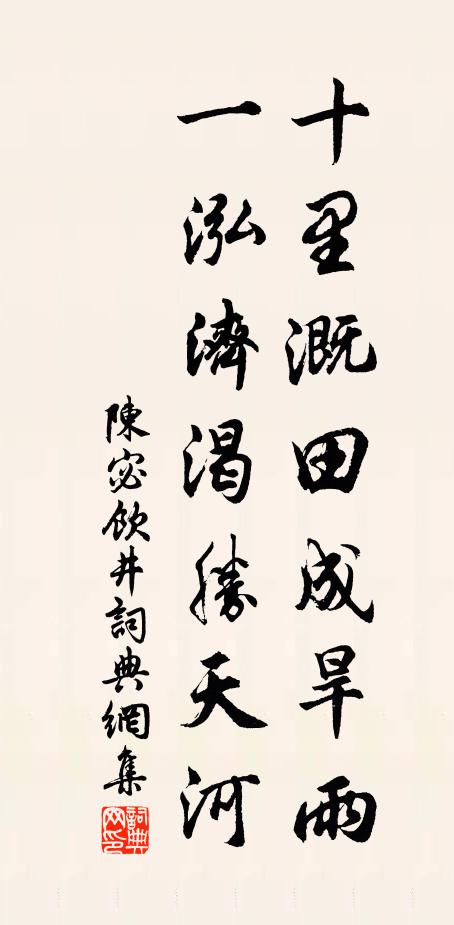 十里溉田成旱雨
一泓濟渴勝天河
陳宓飲井詞典網集
詞典网印